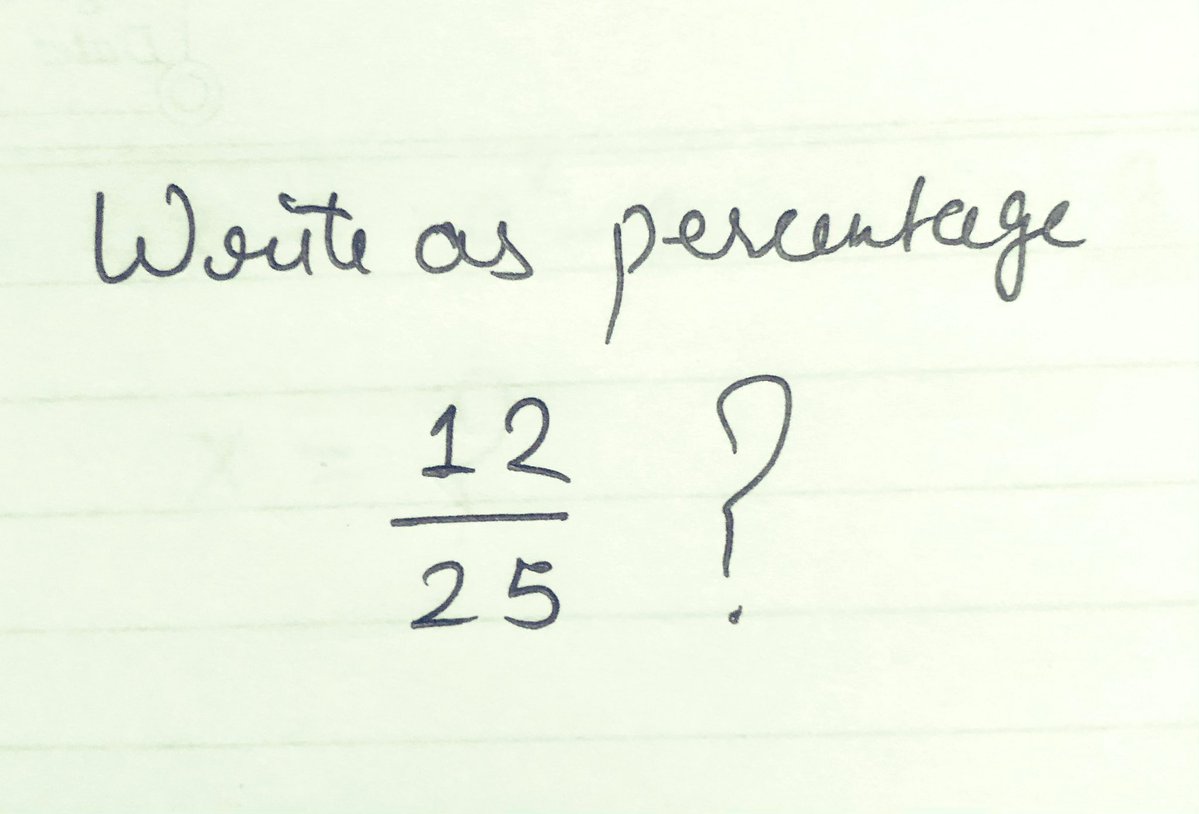 Write as percentage
12
25 ?